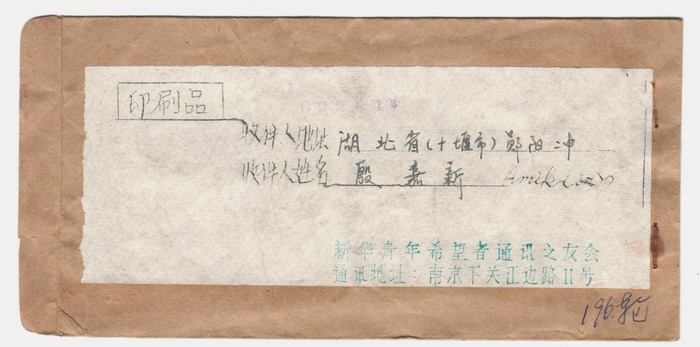 印刷品
收件人地址 湖北省(十堰市)郧阳二中
收件人姓名 殷嘉新
新华青年希望者通讯之友会
通讯地址：南京下关江边路11号